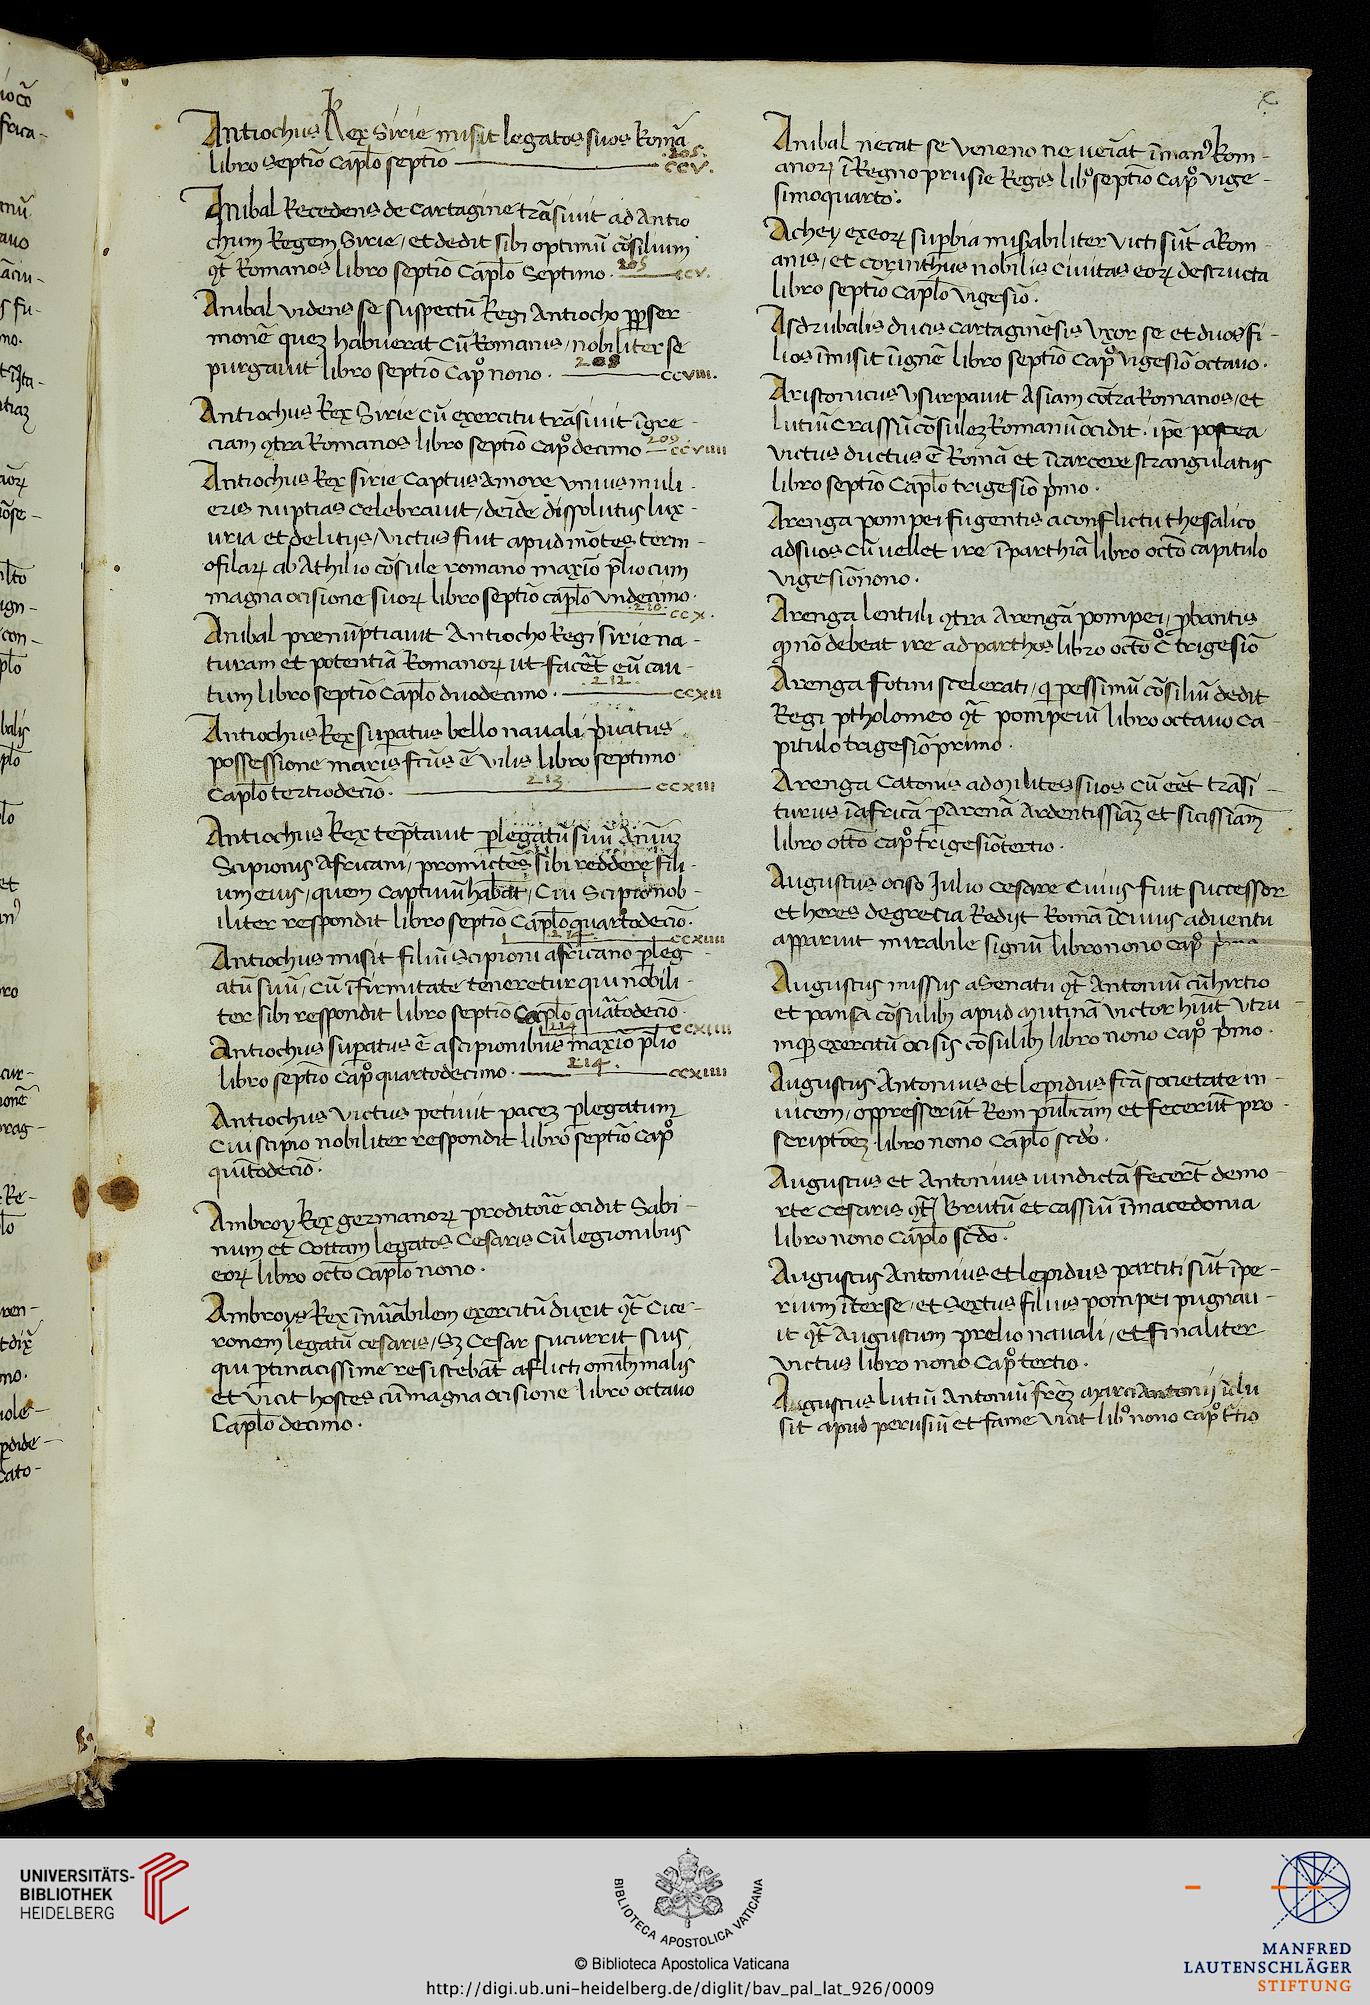 Antiochus Rex Sirie misit legatos suos Romā
libro septīo Caplo̅ septīo
205.
CCV.
Anibal Recedens de Cartagine trāsivit ad Antio
chum Regem Sirie / et dedit sibi optimū cōsilium
9t̄ Romanos libro septīo Caplo̅ Septimo .
205
CCV.
Anibal videns se suspectū Regi Antiocho ꝑpser-
monē quez habuerat cū Romanis / nobiliter se
purgavit libro septīo Capº nono .
208
CCVIII.
Antiochus Rex Sirie cū exercitu trāsivit īgre-
ciam 9tra Romanos libro septīo Capº decimo
209
CCVIIII
Antiochus Rex sirie Captus Amore unius muli-
eris nuptias Celebravit / deīde dissolutus lux-
uria et delitijs / victus fuit apud mōtes term-
ofilaꝝ ab Athilio cōsule romano maxīo p̄lio cum
magna ocisione suoꝝ libro septīo caplo̅ Undecimo.
210.
CCX.
Anibal prenūptiavit Antiocho Regi sirie na-
turam et potentiā Romanoꝝ ut facēt eū cau-
tum libro septīo Caplo̅ duodecimo .
212.
CCXII
Antiochus Rex suꝑatus bello navali p̄vatus
possessione maris fc̄us ē vilis libro septimo
Caplo̅ tertiodecīo .
213
CCXIII
Antiochus Rex tēptavit ꝑ legatū suū Animū
Scipionis Africani / promictens sibi reddere fili-
um eius / quem Captivū habēat / Cui Scipio nob-
iliter respondit libro septio Caplo̅ quartodecīo.
214.
CCXIIII
Antiochus misit filiū scipioni africano ꝑ leg-
atū suū / Cū īfirmitate teneretur qui nobili-
ter sibi respondit libro septīo Caplo̅ quātodecīo.
214
CCXIIII
Antiochus suꝑatus ē a scipionibus maxīo p̄lio
libro septīo Capº quartodecimo .
214.
CCXIIII
Antiochus victus petivit pacez ꝑ legatum
Cui scipio nobiliter respondit libro septīo Capº
quītodecīo .
Ambroy Rex germanoꝝ proditoīe ocidit Sabi-
num et Cottam legatos Cesaris Cū legionibus
eoꝝ libro octo Caplo̅ nono .
Ambroys Rex īnūabilem exercitū duxit 9t̄ Cice-
ronem legatū cesaris / Sz Cesar sucurrit suis
qui ꝑtinacissime resistebāt aflicti omībꝫ malis
et vicit hostes cū magna ocisione libro octavo
Caplo̅ decimo .
Anibal necat se veneno ne veīat ī man9 Rom-
anoꝝ ī Regno prusie Regis libº septīo Capº vige-
simoquarto .
Achey ex eoꝝ suꝑbia misabiliter victi sūt a Rom-
anis / et corinthus nobilis Civitas eoꝝ destructa
libro septīo Caplo̅ vigesīo .
Asdrubalis ducis Cartaginēsis Uxor se et duos fi-
lios īmisit ī ignē libro septīo Capº vigesīo octavo .
Aristonicus Usurpavit Asiam cōtra Romanos / et
Lutiū Crassū cōsulez Romanū ocidit . ip̄e postea
victus ductus ē Romā et ī carcere strangulatus
libro septīo Caplo̅ trigesīo p̄mo .
Arenga pompei fugentis a conflictu thesalico
ad suos cū vellet ire ī parthiā libro octo capitulo
vigesīonono .
Arenga lentuli 9tra Arengā pompei / ꝓbantis
q̄ nō debeat ire ad parthos libro octo C̊ trigesīo
Arenga fotini scelerati / q̄ pessimū cōsiliū dedit
Regi ptholomeo 9t̄ pompeiū libro octavo Ca-
pitulo trigesīo primo .
Arenga Catonis ad milites suos cū eēt trāsi-
turus ī africā ꝑ Arenā Ardentissiāz et sicissiām
libro otto capº trigesīotertio .
Augustus ociso Julio Cesare Cuius fuit successor
et heres de grecia Redijt Romā ī cuius adventu
apparuit mirabile signū libro nono Capº p̄mo
Augustus missus a Senatu 9t̄ Antoniū cū hirtio
et pansa cōsulibꝫ apud Mutinā victor hūit utrū-
mqꝫ exercitū ocisis cōsulibꝫ libro nono Capº p̄mo .
Augustus Antonius et lepidus fc̄a societate in-
vicem / oppresserūt Rem publicam et fecerūt pro-
scriptōez libro nono Caplo̅ scd̄o .
Augustus et Antonius vindictā fecerūt de mo-
rte Cesaris 9t̄ Brutū et cassiū ī macedonia
libro nono Caplo̅ scd̄o .
Augustus Antonius et lepidus partiti sūt īpe-
rium īter se / et Sextus filius pompei pugnav-
it 9t̄ Augustum prelio navali / et finaliter
victus libro nono Capº tertio .
Augustus Lutiū Antoniū frēz Marci Antonij iclu
sit apud perusiū et fame vicit libº nono capº t̄tio
UNIVERSITÄTS-
BIBLIOTHEK
HEIDELBERG
BIBLIOTECA APOSTOLICA VATICANA
© Biblioteca Apostolica Vaticana
http://digi.ub.uni-heidelberg.de/diglit/bav_pal_lat_926/0009
MANFRED
LAUTENSCHLÄGER
STIFTUNG